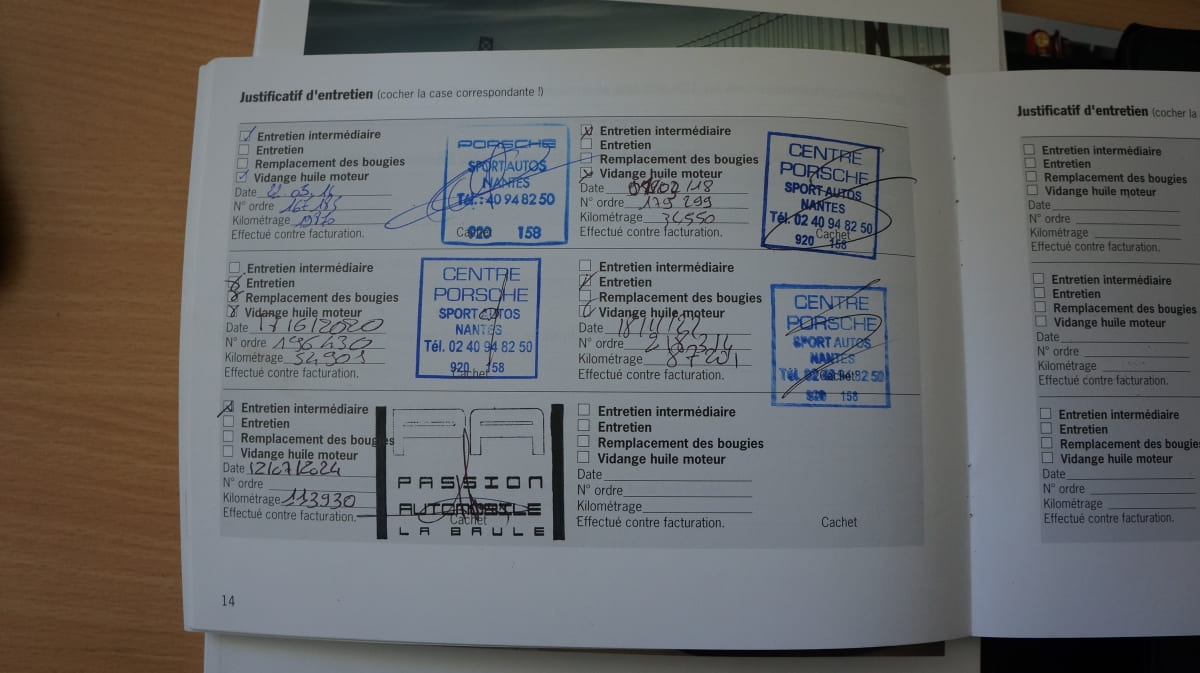 Justificatif d'entretien (cocher la case correspondante !)
Entretien intermédiaire
Entretien
Remplacement des bougies
Vidange huile moteur
Date 22.05.14
N° ordre
Kilométrage
Effectué contre facturation.
PORSCHE
SPORT AUTOS
NANTES
Tél.: 40 94 82 50
Cachet
920 158
Entretien intermédiaire
Entretien
Remplacement des bougies
Vidange huile moteur
Date
N° ordre 179 299
Kilométrage 34550
Effectué contre facturation.
CENTRE
PORSCHE
SPORT AUTOS
NANTES
Tél. 02 40 94 82 50
Cachet
920 158
Entretien intermédiaire
Entretien
Remplacement des bougies
Vidange huile moteur
Date 17/6/2020
N° ordre 196430
Kilométrage 54903
Effectué contre facturation.
CENTRE
PORSCHE
SPORT AUTOS
NANTES
Tél. 02 40 94 82 50
920 158
Cachet
Entretien intermédiaire
Entretien
Remplacement des bougies
Vidange huile moteur
Date 18/1/22
N° ordre 218314
Kilométrage 87201
Effectué contre facturation.
CENTRE
PORSCHE
SPORT AUTOS
NANTES
Tél. 02 40 94 82 50
Cachet
920 158
Entretien intermédiaire
Entretien
Remplacement des bougies
Vidange huile moteur
Date 12/07/2024
N° ordre
Kilométrage 113930
Effectué contre facturation.
PASSION
AUTOMOBILE
Cachet
LA BAULE
Entretien intermédiaire
Entretien
Remplacement des bougies
Vidange huile moteur
Date
N° ordre
Kilométrage
Effectué contre facturation.
Cachet
14
Justificatif d'entretien (cocher la
Entretien intermédiaire
Entretien
Remplacement des bougies
Vidange huile moteur
Date
N° ordre
Kilométrage
Effectué contre facturation.
Entretien intermédiaire
Entretien
Remplacement des bougies
Vidange huile moteur
Date
N° ordre
Kilométrage
Effectué contre facturation.
Entretien intermédiaire
Entretien
Remplacement des bougies
Vidange huile moteur
Date
N° ordre
Kilométrage
Effectué contre facturation.